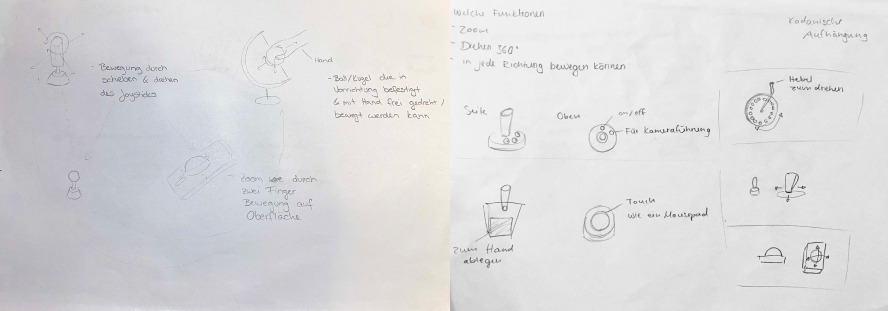 - Bewegung durch
schieben & drehen
des Joysticks
Hand
- Ball/Kugel die in
Vorrichtung befestigt
& mit Hand frei gedreht/
bewegt werden kann
- Zoom durch
zwei Finger
Bewegung auf
Oberfläche
Welche Funktionen
- Zoom
- Drehen 360°
- in jede Richtung bewegen können
Kadanische
Aufhängung
Hebel
zum drehen
Seite
Oben
on/off
Für Kameraführung
Touch
wie ein Mousepad
zum Hand
ablegen